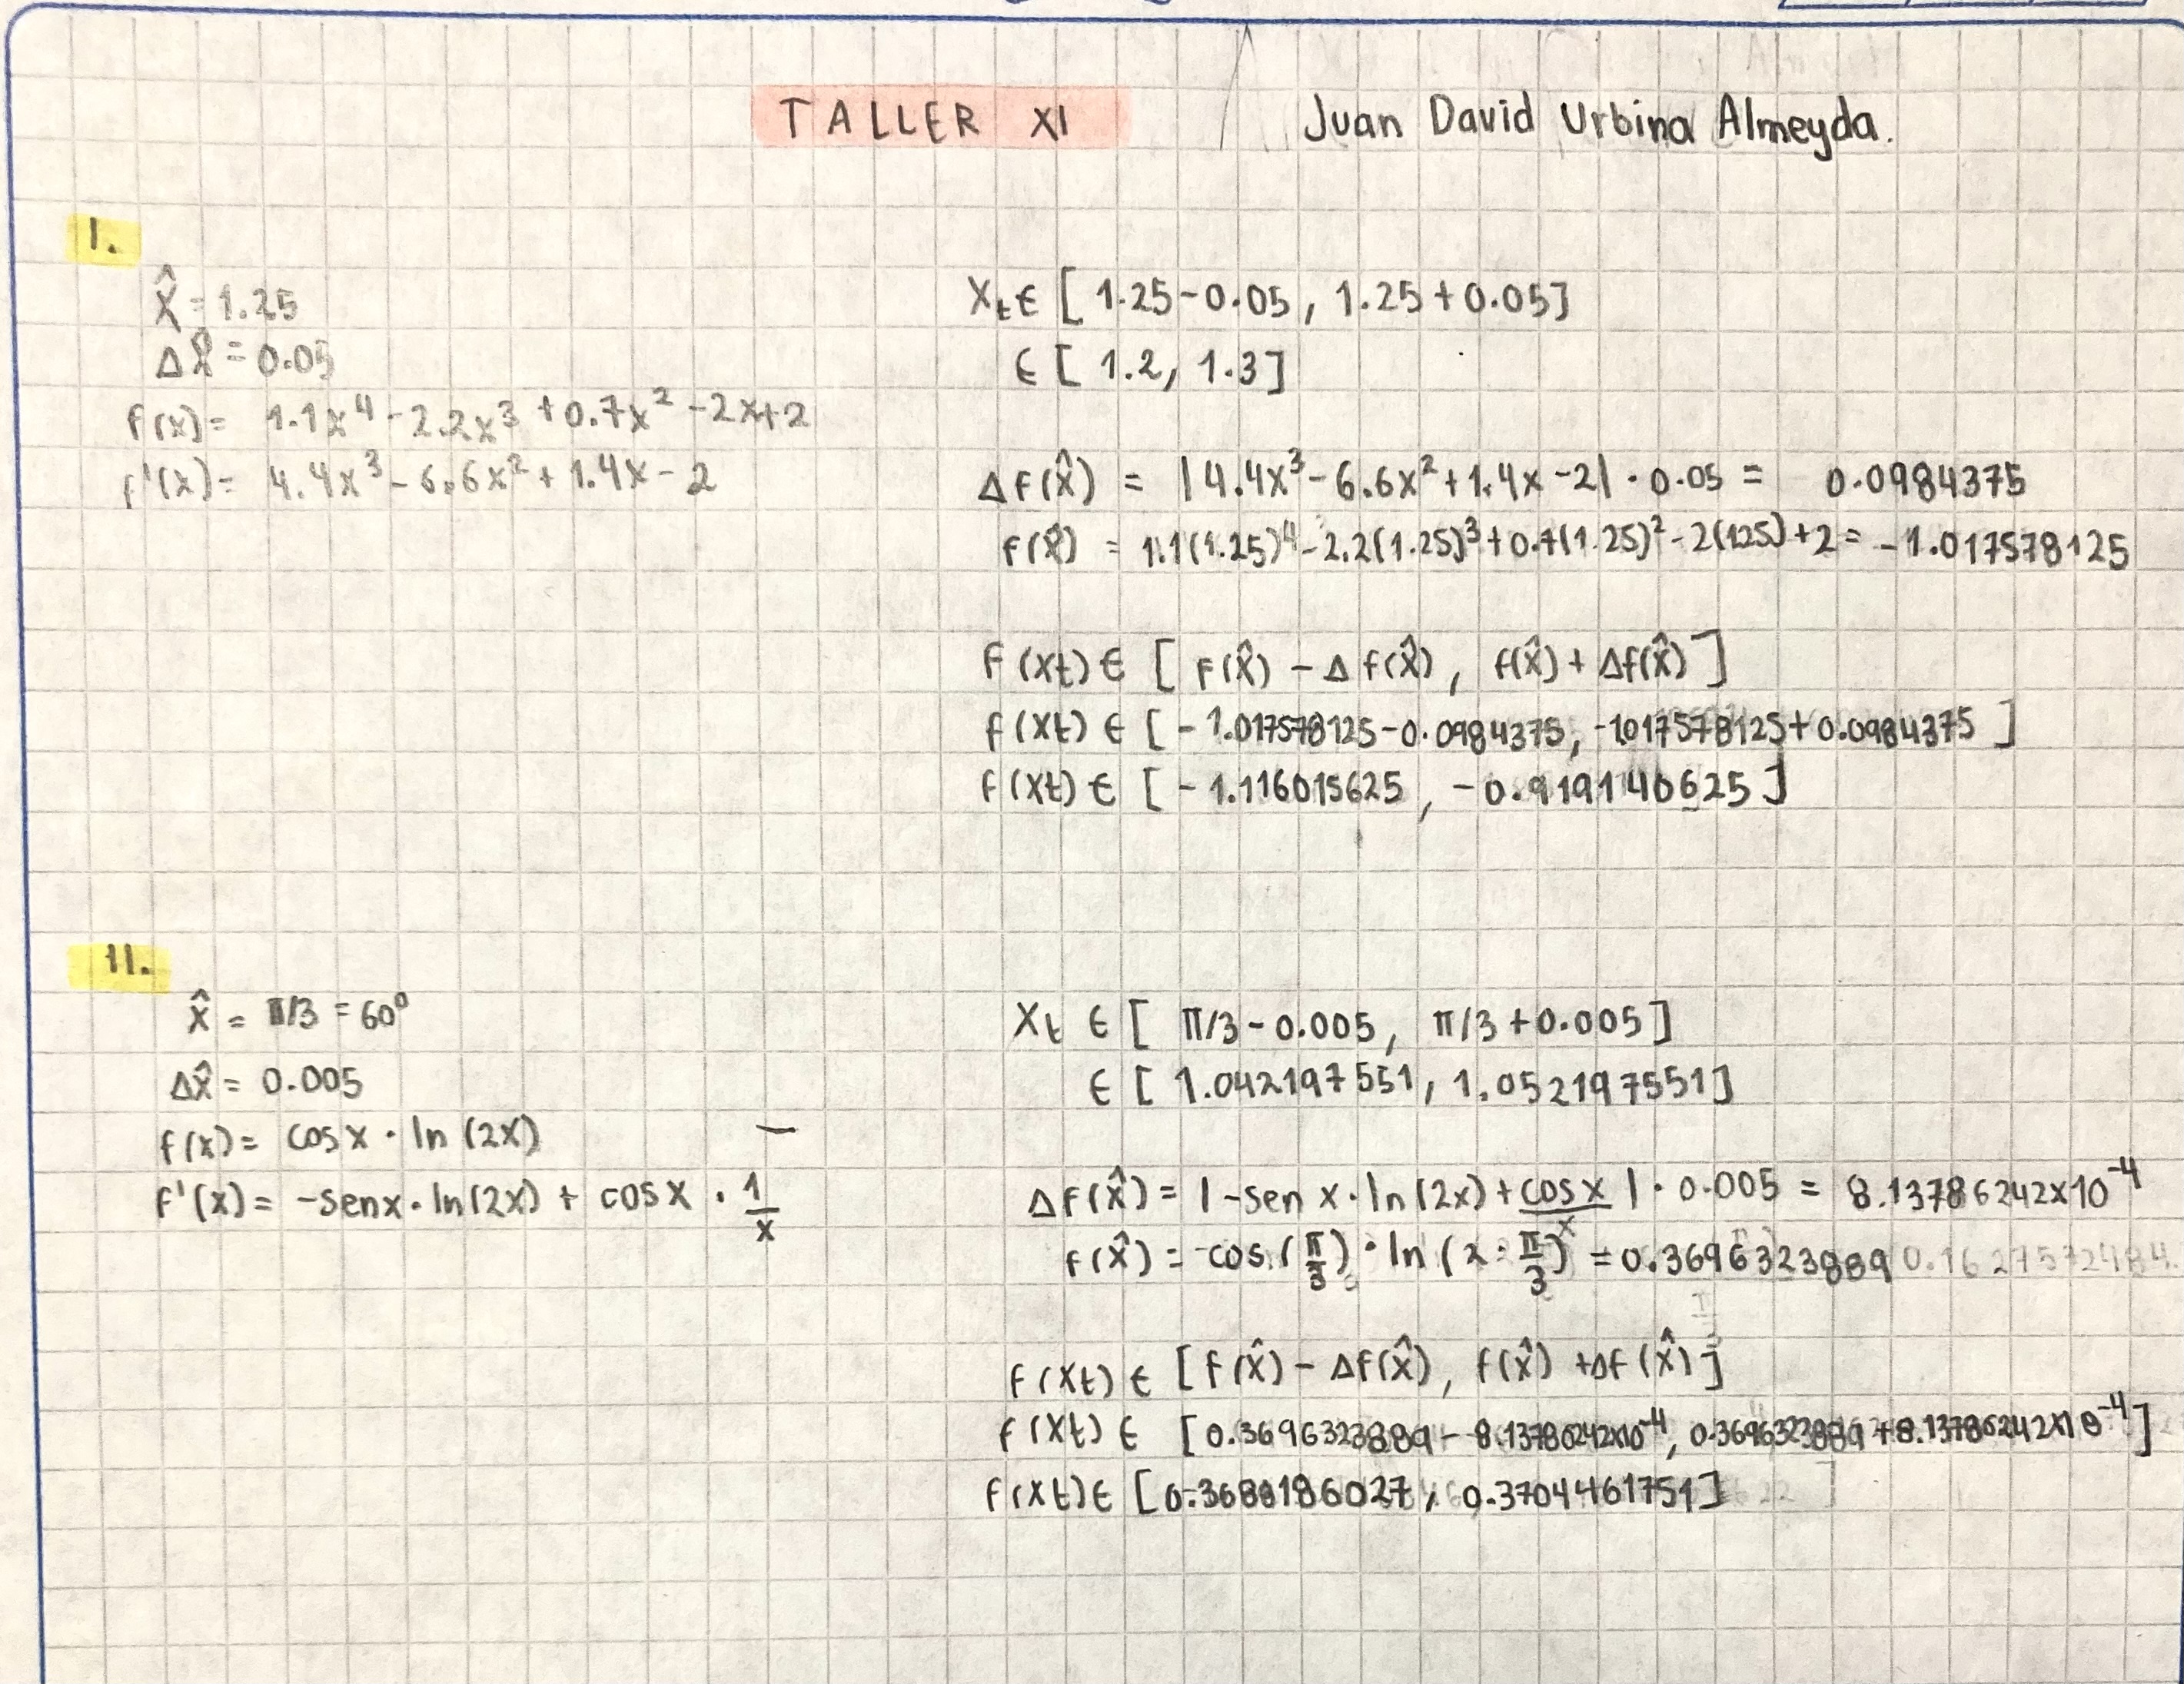 TALLER XI
Juan David Urbina Almeyda.
I.
x̂ = 1.25
Δx̂ = 0.05
f(x)= 1.1x⁴ - 2.2x³ + 0.7x² - 2x+2
f'(x)= 4.4x³ - 6.6x² + 1.4x - 2
Xt ∈ [ 1.25-0.05 , 1.25+0.05]
∈ [ 1.2, 1.3]
Δf(x̂) = |4.4x³ - 6.6x² + 1.4x - 2| · 0.05 = 0.0984375
f(x̂) = 1.1(1.25)⁴ - 2.2(1.25)³ + 0.7(1.25)² - 2(1.25) + 2 = -1.017578125
f(xt) ∈ [ f(x̂) - Δf(x̂) , f(x̂) + Δf(x̂) ]
f(xt) ∈ [ -1.017578125 - 0.0984375, -1.017578125 + 0.0984375 ]
f(xt) ∈ [ -1.116015625 , -0.919140625 ]
II.
x̂ = π/3 = 60°
Δx̂ = 0.005
f(x)= cosx · ln (2x)
f'(x)= -senx · ln(2x) + cosx · 1/x
Xt ∈ [ π/3 - 0.005, π/3 + 0.005]
∈ [ 1.042197551, 1.052197551]
Δf(x̂) = |-sen x · ln(2x) + cosx/x | · 0.005 = 8.13786242x10⁻⁴
f(x̂) = cos (π/3) · ln (2 · π/3) = 0.3696323889
f(xt) ∈ [f(x̂) - Δf(x̂), f(x̂) + Δf(x̂)]
f(xt) ∈ [0.3696323889 - 8.13786242x10⁻⁴, 0.3696323889 + 8.13786242x10⁻⁴]
f(xt) ∈ [ , 0.3704461751]